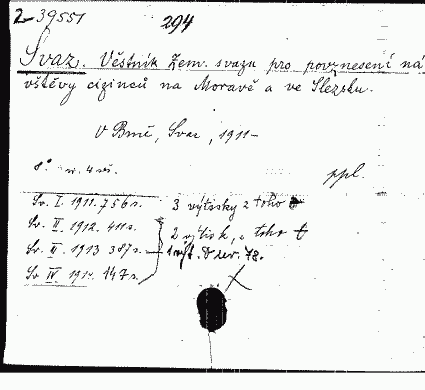 2-39551 294
Svaz. Věstník Zem. svazu pro povznesení ná
vštěvy cizinců na Moravě a ve Slezsku.
V Brně, Svaz, 1911-
8° ppl.
Sv. I. 1911. 756 s. 3 výtisky z toho t
Sv. II. 1912. 411 s. 2 výtisk, z toho t
Sv. II. 1913 387 s. 1 výt. D 78.
Sv IV. 1914. 147 s.